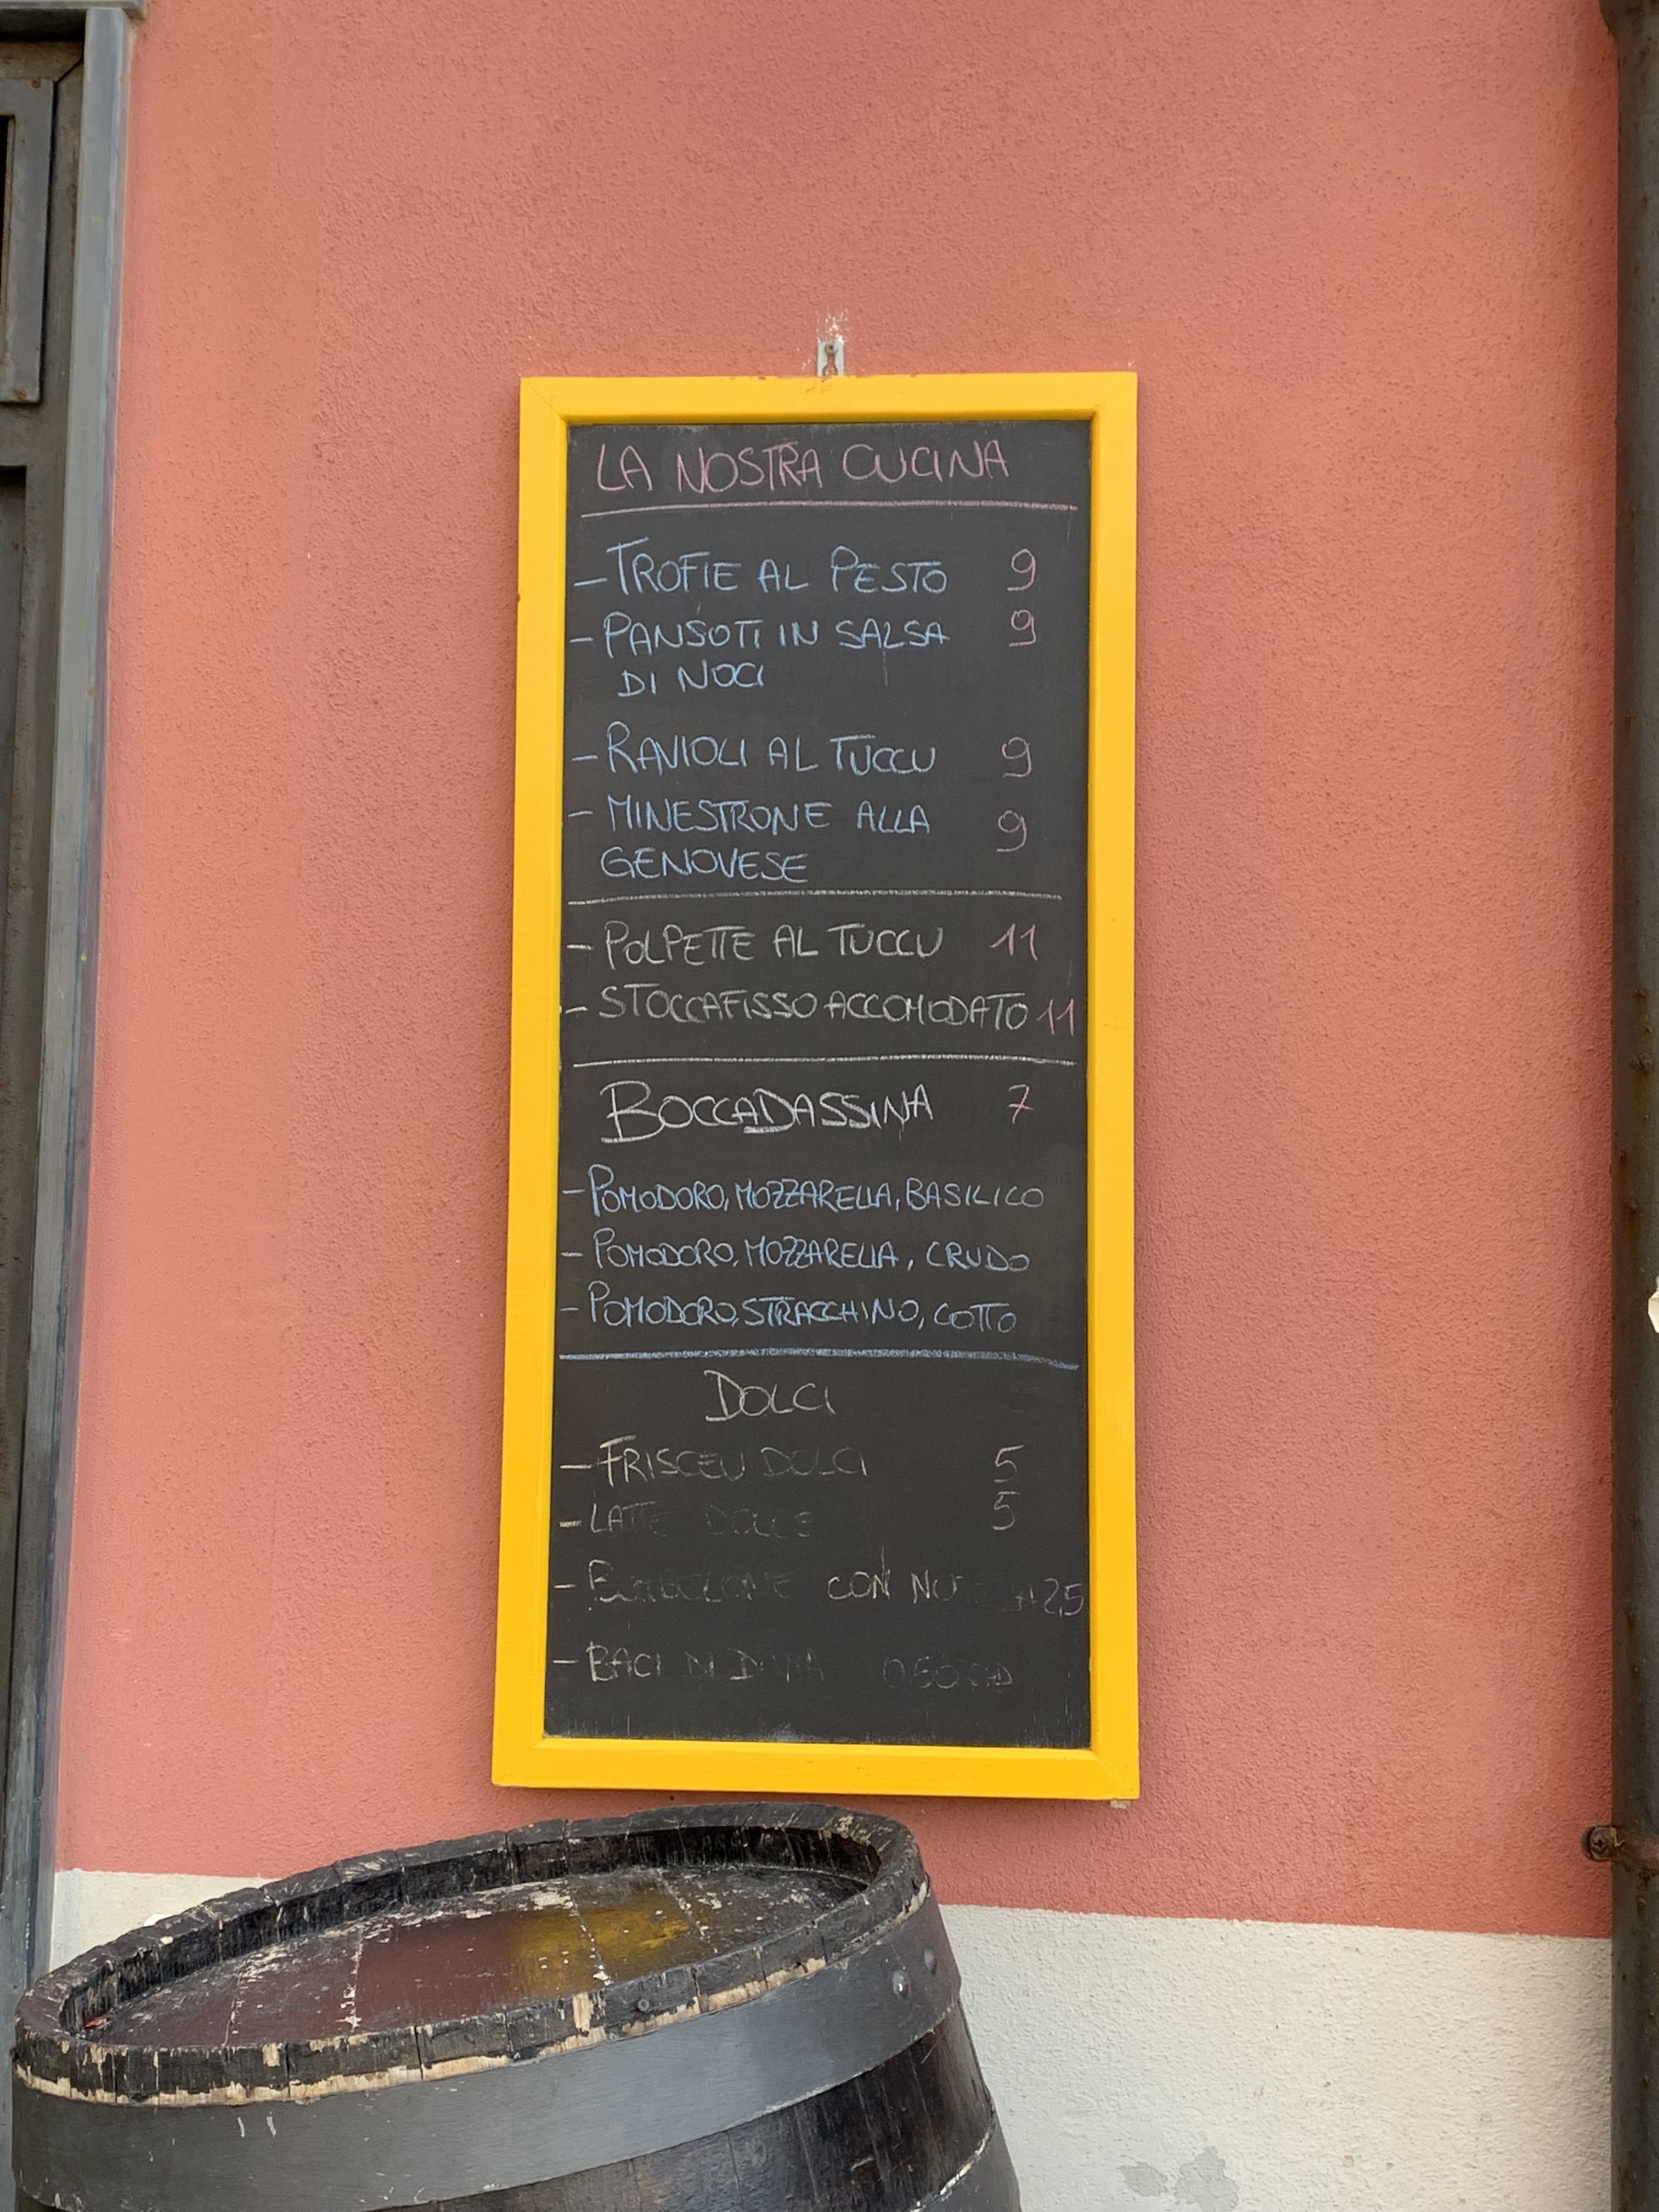 LA NOSTRA CUCINA
- TROFIE AL PESTO 9
- PANSOTI IN SALSA 9
DI NOCI
- RAVIOLI AL TUCCU 9
- MINESTRONE ALLA 9
GENOVESE
- POLPETTE AL TUCCU 11
- STOCCAFISSO ACCOMODATO 11
BOCCADASSINA 7
- POMODORO, MOZZARELLA, BASILICO
- POMODORO, MOZZARELLA, CRUDO
- POMODORO, STRACCHINO, COTTO
DOLCI
- FRISCEU DOLCI 5
- LATTE DOLCE 5
- CON 2,5
- BACI DI DAMA